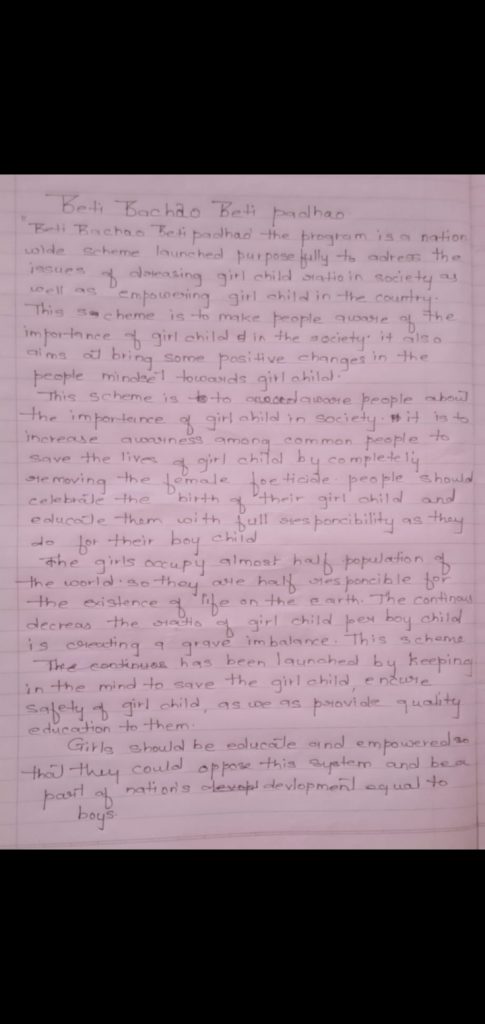 Beti Bachao Beti padhao
"Beti Bachao Beti padhao" the program is a nation
wide scheme launched purposefully to adress the
issues of dcreasing girl child ratio in society as
well as empowering girl child in the country.
This scheme is to make people aware of the
importance of girl child in the society. it also
aims at bring some positive changes in the
people mindset towards girl child.
This scheme is to aware people about
the importance of girl child in society. it is to
increase awarness among common people to
save the lives of girl child by completely
removing the female foeticide. people should
celebrate the birth of their girl child and
educate them with full responcibility as they
do for their boy child
The girls occupy almost half population of
the world. so they are half responcible for
the existence of life on the earth. The continous
decreas the ratio of girl child per boy child
is creating a grave imbalance. This scheme
has been launched by keeping
in the mind to save the girl child, encure
safety of girl child, as we as provide quality
education to them.
Girls should be educate and empowered so
that they could oppose this system and be a
part of nation's devlopment equal to
boys.